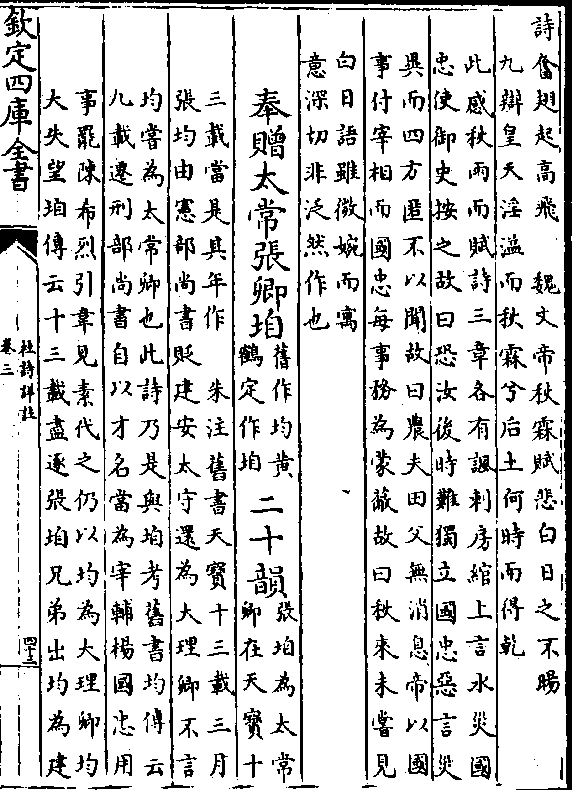 詩奮翅起高飛　魏文帝秋霖賦悲白日之不暘
九辯皇天淫溢而秋霖兮后土何時而得乾
此感秋雨而賦詩三章各有諷刺房綰上言水災國
忠使御史按之故曰恐汝後時難獨立國忠惡言災
異而四方匿不以聞故曰農夫田父無消息帝以國
事付宰相而國忠每事務為蒙蔽故曰秋來未嘗見
白日語雖微婉而寓
意深切非泛然作也
奉贈太常張卿垍
舊作均黄
鶴定作垍
二十韻
張垍為太常
卿在天寶十
三載當是其年作　朱注舊書天寶十三載三月
張均由憲部尚書貶建安太守還為大理卿不言
均嘗為太常卿也此詩乃是與垍考舊書均傳云
九載遷刑部尚書自以才名當為宰輔楊國忠用
事罷陳希烈引韋見素代之仍以均為大理卿均
大失望垍傳云十三載盡逐張垍兄弟出均為建
欽定四庫全書
杜詩詳註
卷三
四十三